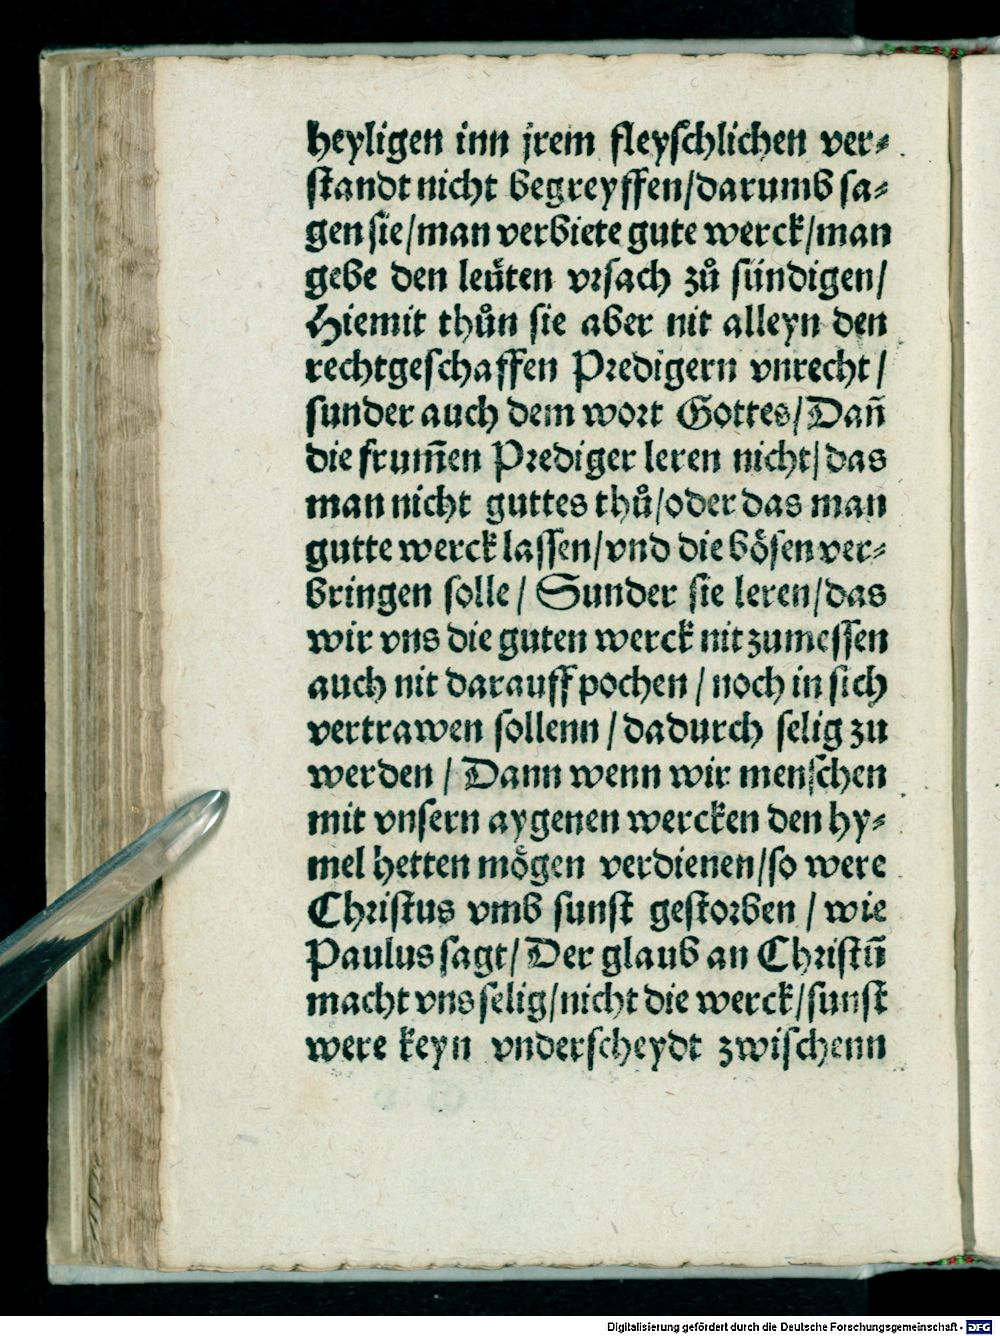 heyligen inn jrem fleyschlichen ver⸗
standt nicht begreyffen/darumb sa⸗
gen sie/man verbiete gute werck/man
gebe den leüten vrsach zů sündigen/
Hiemit thůn sie aber nit alleyn den
rechtgeschaffen Predigern vnrecht/
sunder auch dem wort Gottes/Dañ
die frum̃en Prediger leren nicht/das
man nicht guttes thů/oder das man
gutte werck lassen/vnd die bösen ver⸗
bringen solle/ Sunder sie leren/das
wir vns die guten werck nit zumessen
auch nit darauff pochen/noch in sich
vertrawen sollenn/dadurch selig zu
werden/ Dann wenn wir menschen
mit vnsern aygenen wercken den hy⸗
mel hetten mögen verdienen/so were
Christus vmb sunst gestorben/wie
Paulus sagt/Der glaub an Christũ
macht vns selig/nicht die werck/sunst
were keyn vnderscheydt zwischenn
Digitalisierung gefördert durch die Deutsche Forschungsgemeinschaft - DFG